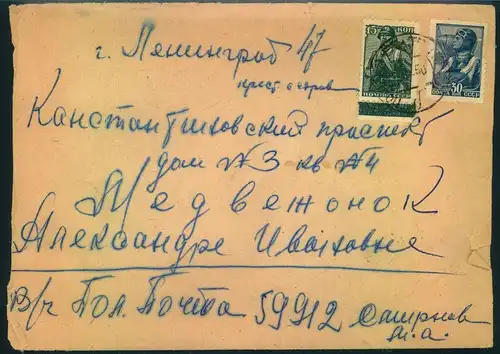 г. Ленинград 47
крест. остров
Канстантиновский проспект
дом №3 кв №4
Медвежонок
Александре Ивановне
В/ч Пол. Почта 59912 Смирнов
м.а.
15 КОП
ПОЧТА СССР
30
ПОЧТА СССР